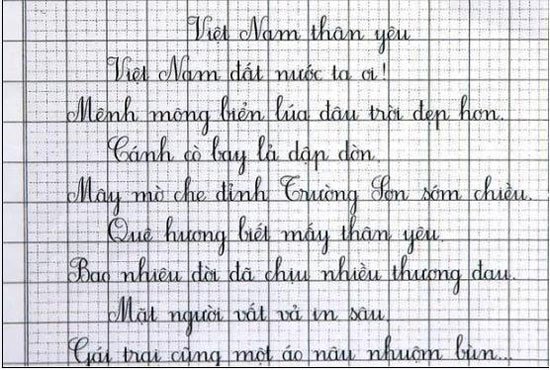 Việt Nam thân yêu
Việt Nam đất nước ta ơi!
Mênh mông biển lúa đâu trời đẹp hơn.
Cánh cò bay lả dập dờn,
Mây mờ che đỉnh Trường Sơn sớm chiều.
Quê hương biết mấy thân yêu
Bao nhiêu đời đã chịu nhiều thương đau.
Mặt người vất vả in sâu,
Gái trai cũng một áo nâu nhuộm bùn...